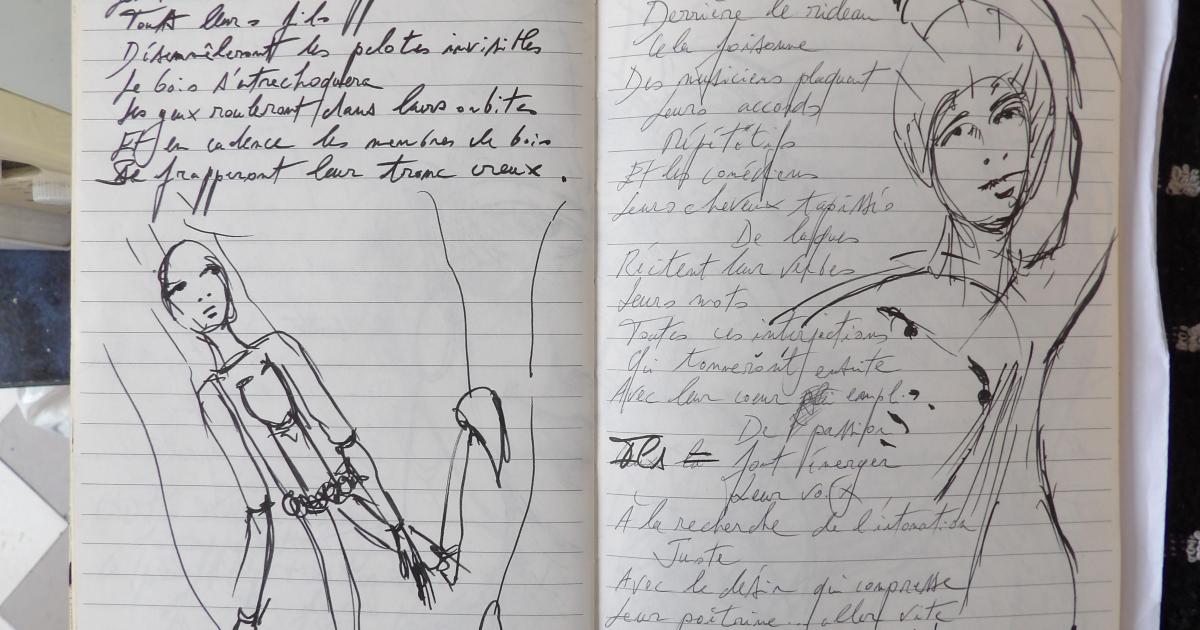 Tous leurs fils
Démmêleront les pelotes invisibles
Le bois s'entrechoquera
Les yeux rouleront dans leurs orbites
Et en cadence les membres de bois
Se frapperont leur tronc creux.
Derrière le rideau
Cela foisonne
Des musiciens plaquent
Leurs accords
Répétitifs
Et les comédiens
Leurs cheveux tapissés
De laques
Récitent leur verbes
Leurs mots
Toutes ces interjections
Qui tonneront ensuite
Avec leur coeur empli
De passion
Ils font émerger
Leur voix
A la recherche de l'intonation
Juste
Avec le désir qui compresse
Leur poitrine aller vite